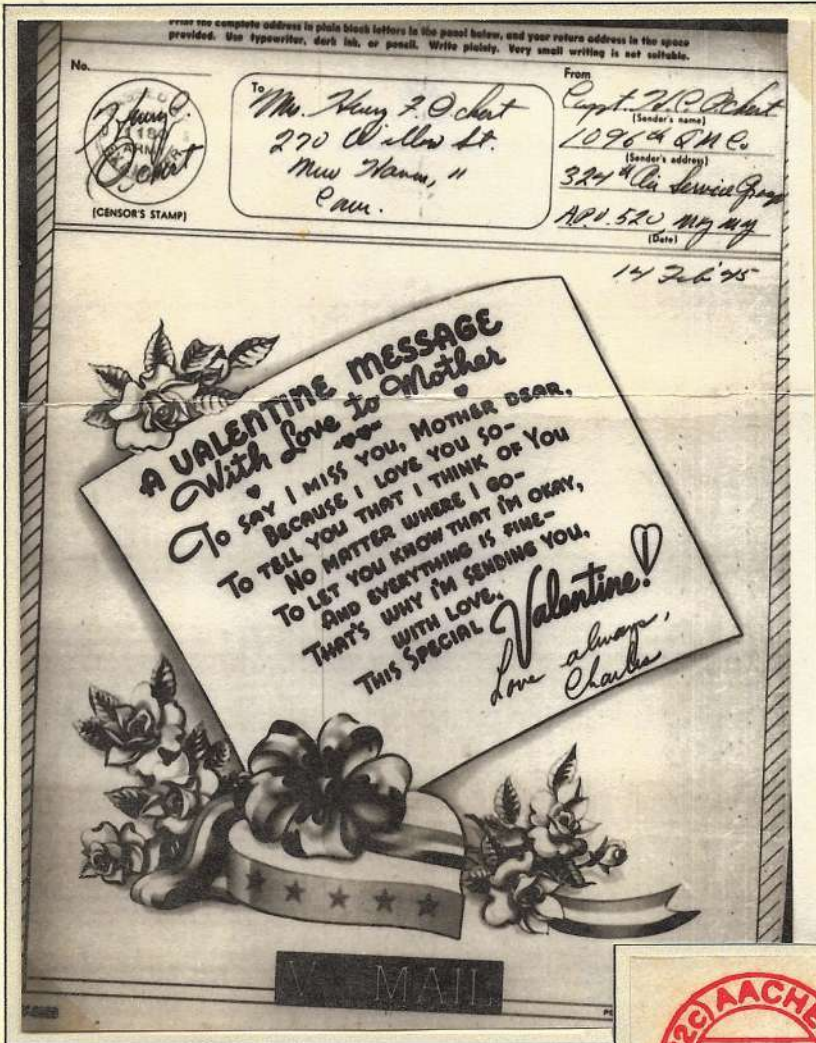 Print the complete address in plain block letters in the panel below, and your return address in the space
provided. Use typewriter, dark ink, or pencil. Write plainly. Very small writing is not suitable.
No.
Henry C.
Ochert
1180
ARMY
(CENSOR'S STAMP)
To
Mrs. Henry F. Ochert
270 Willow St.
New Haven, 11
Conn.
From
Capt. H.C. Ochert
(Sender's name)
1096th QM Co
(Sender's address)
324th Air Service Group
A.P.O. 520, NY NY
(Date)
14 Feb '45
A VALENTINE MESSAGE
With Love to Mother
TO SAY I MISS YOU, MOTHER DEAR,
BECAUSE I LOVE YOU SO-
TO TELL YOU THAT I THINK OF YOU
NO MATTER WHERE I GO-
TO LET YOU KNOW THAT I'M OKAY,
AND EVERYTHING IS FINE-
THAT'S WHY I'M SENDING YOU,
WITH LOVE,
THIS SPECIAL Valentine!
Love always,
Charles
V - MAIL